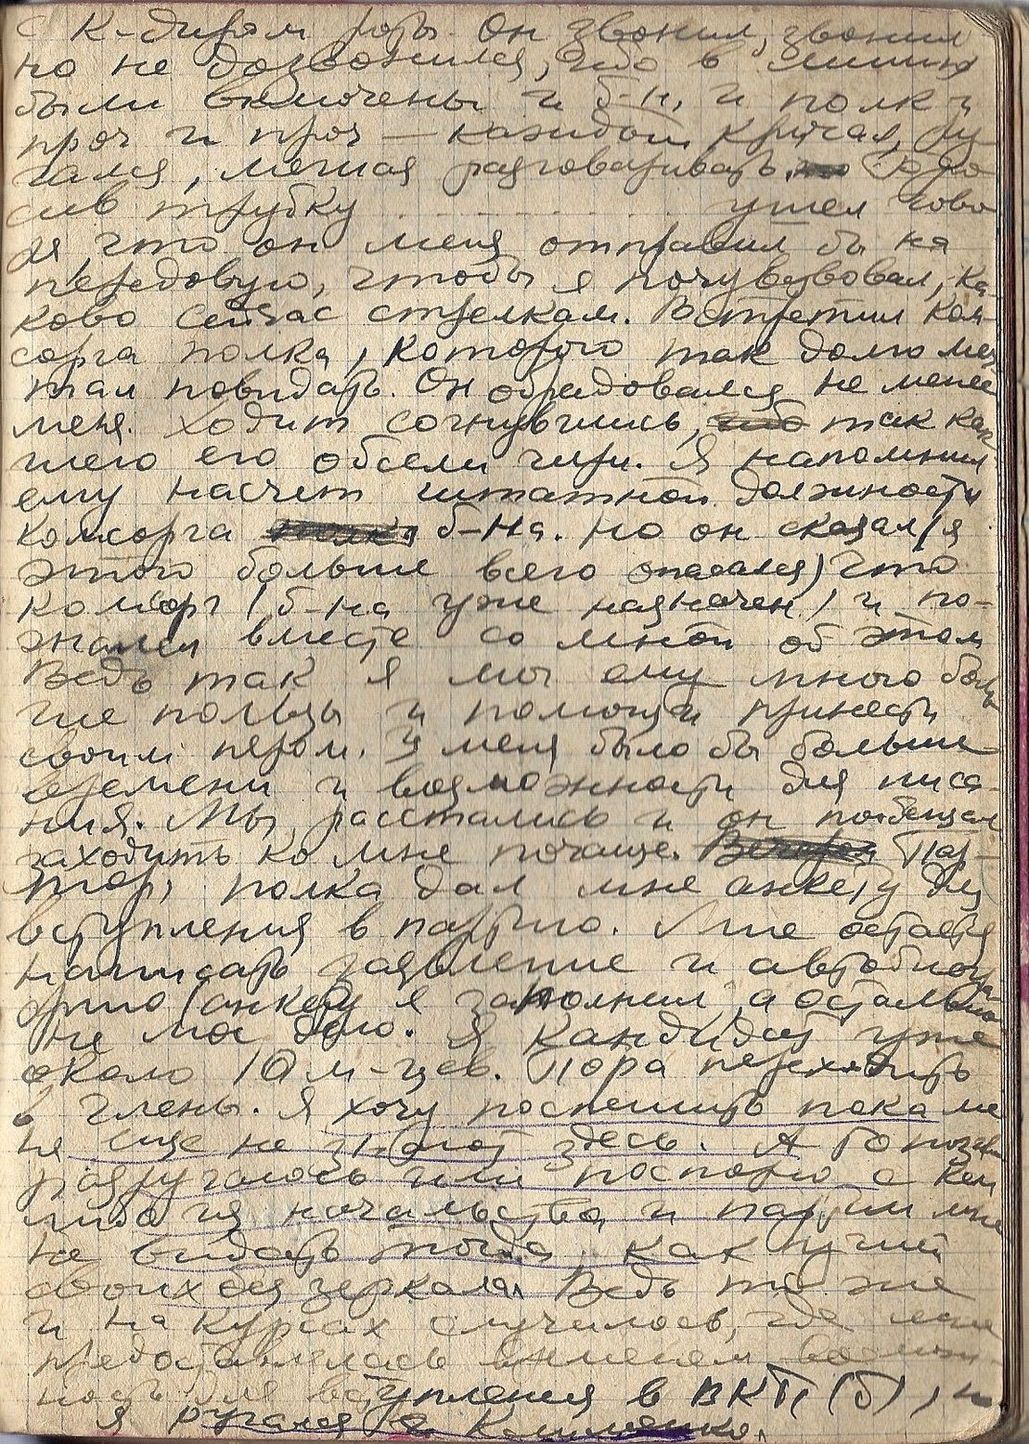 с к-диром роты. Он звонил, звонил
но не дозвонился, ибо в линию
были включены и б-н, и полк и
проч и проч — каждый кричал, ру-
гался, мешая разговаривать. Бро
сив трубку ушел гово
ря, что он меня отправил бы на
передовую, чтобы я почувствовал, ка-
ково сейчас стрелкам. Встретил ком-
сорга полка, которого так долго меч
тал повидать. Он обрадовался не менее
меня. Ходит согнувшись, ибо так как
шею его обсели чири. Я напомнил
ему насчет штатной должности
комсорга полка б-на. Но он сказал (я
этого больше всего опасался) что
комсорг (б-на уже назначен) и по-
жалел вместе со мной об этом
Ведь так я мог ему много боль
ше пользы и помощи принести
своим пером. У меня было бы больше
времени и возможности для писа-
ния. Мы расстались и он пообещал
заходить ко мне почаще. Вечером Пар-
торг полка дал мне анкету для
вступления в партию. Мне остается
написать заявление и автобиогра-
фию (анкету я заполнил, а остальное
не мог дело. Я кандидат уже
около 10 м-цев. Пора переходить
в члены. Я хочу поспешить пока ме
ня еще не знают здесь. А то позже
разругаюсь или поспорю с кем
либо из начальства и партии мне
не видать тогда как ушей
своих без зеркала. Ведь то же
и на курсах случилось, где мне
предоставлялась возмож-
ность для вступления в ВКП(б), но
я ругался с Клименко.